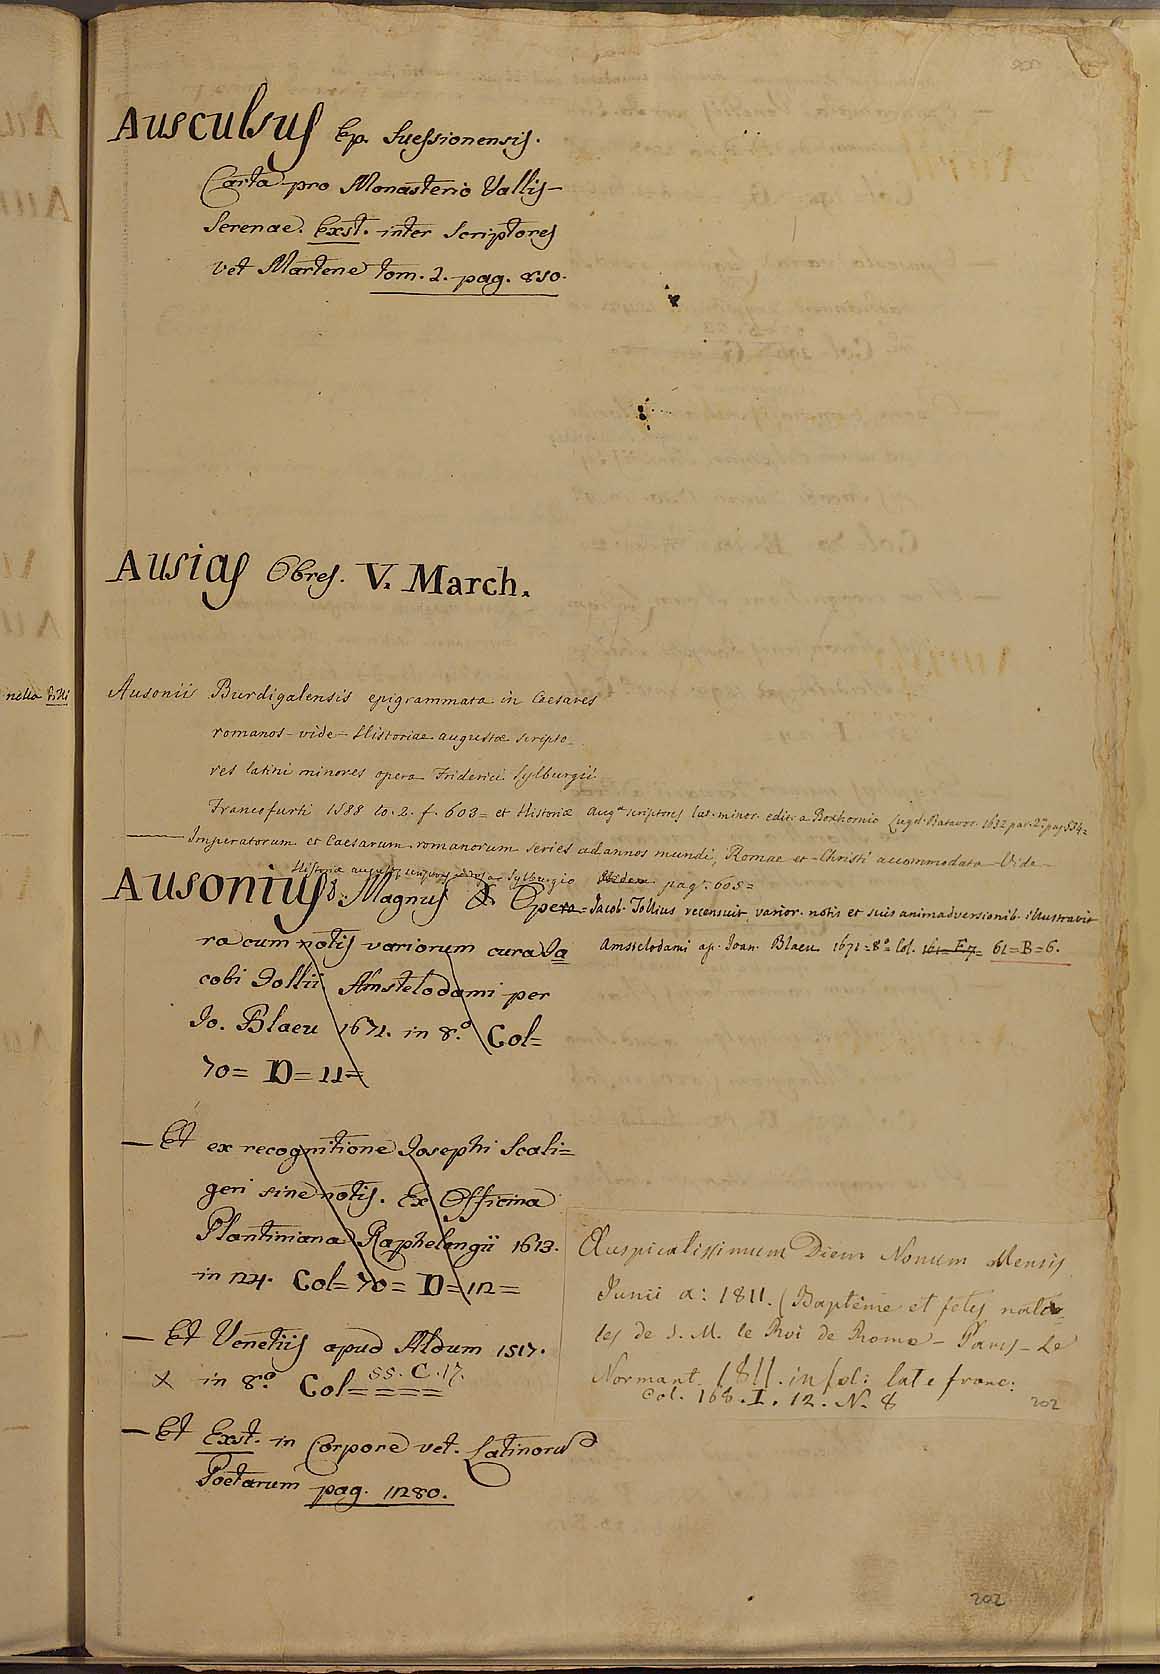 Ausculsus Ep. Suessionensis.
Carta pro Monasterio Vallis-
Serenae. Exst. inter Scriptores
vet Martene tom. 2. pag. 850.
Ausias Obres. V. March.
nella
Ausonii Burdigalensis epigrammata in Caesares
romanos - vide - Historiae augustae scripto-
res latini minores opera Friderici Sylburgii
Francofurti 1588 to. 2. f. 603 = et Historiæ Aug.ae scriptores lat. minor. edit. a Boxhornio Lugd. Batavor. 1632 par. 2.a pag. 534=
Imperatorum et Caesarum romanorum series ad annos mundi, Romae et Christi accommodata - Vide -
Sylburgio Ibidem pag. 605=
Ausonius D. Magnus Opera= Jacob. Tollius recensuit, varior. notis et suis animadversionib. illustravit
ra cum notis variorum cura Ja
Amstelodami ap. Joan. Blaeu 1671 = 8.o Col. 161=F.7= 61=B=6.
cobi Tollii Amstelodami per
Jo. Blaeu 1671. in 8.o Col=
70= D= 11=
— Et ex recognitione Josephi Scali=
geri sine notis. Ex Officina
Plantiniana Raphelengii 1613.
in 24. Col= 70= D= 12=
— Et Venetiis apud Aldum 1517.
x in 8.o Col= 55. C. 17.
— Et Exst. in Corpore vet. Latinorum
Poetarum pag. 1280.
Auspicatissimum Diem Nonum Mensis
Junii a: 1811. (Baptême et fetes nata-
les de S. M. le Roi de Rome - Paris - Le
Normant 1811. in fol: lat e franc:
Col. 168. I. 12. N. 8
202
202